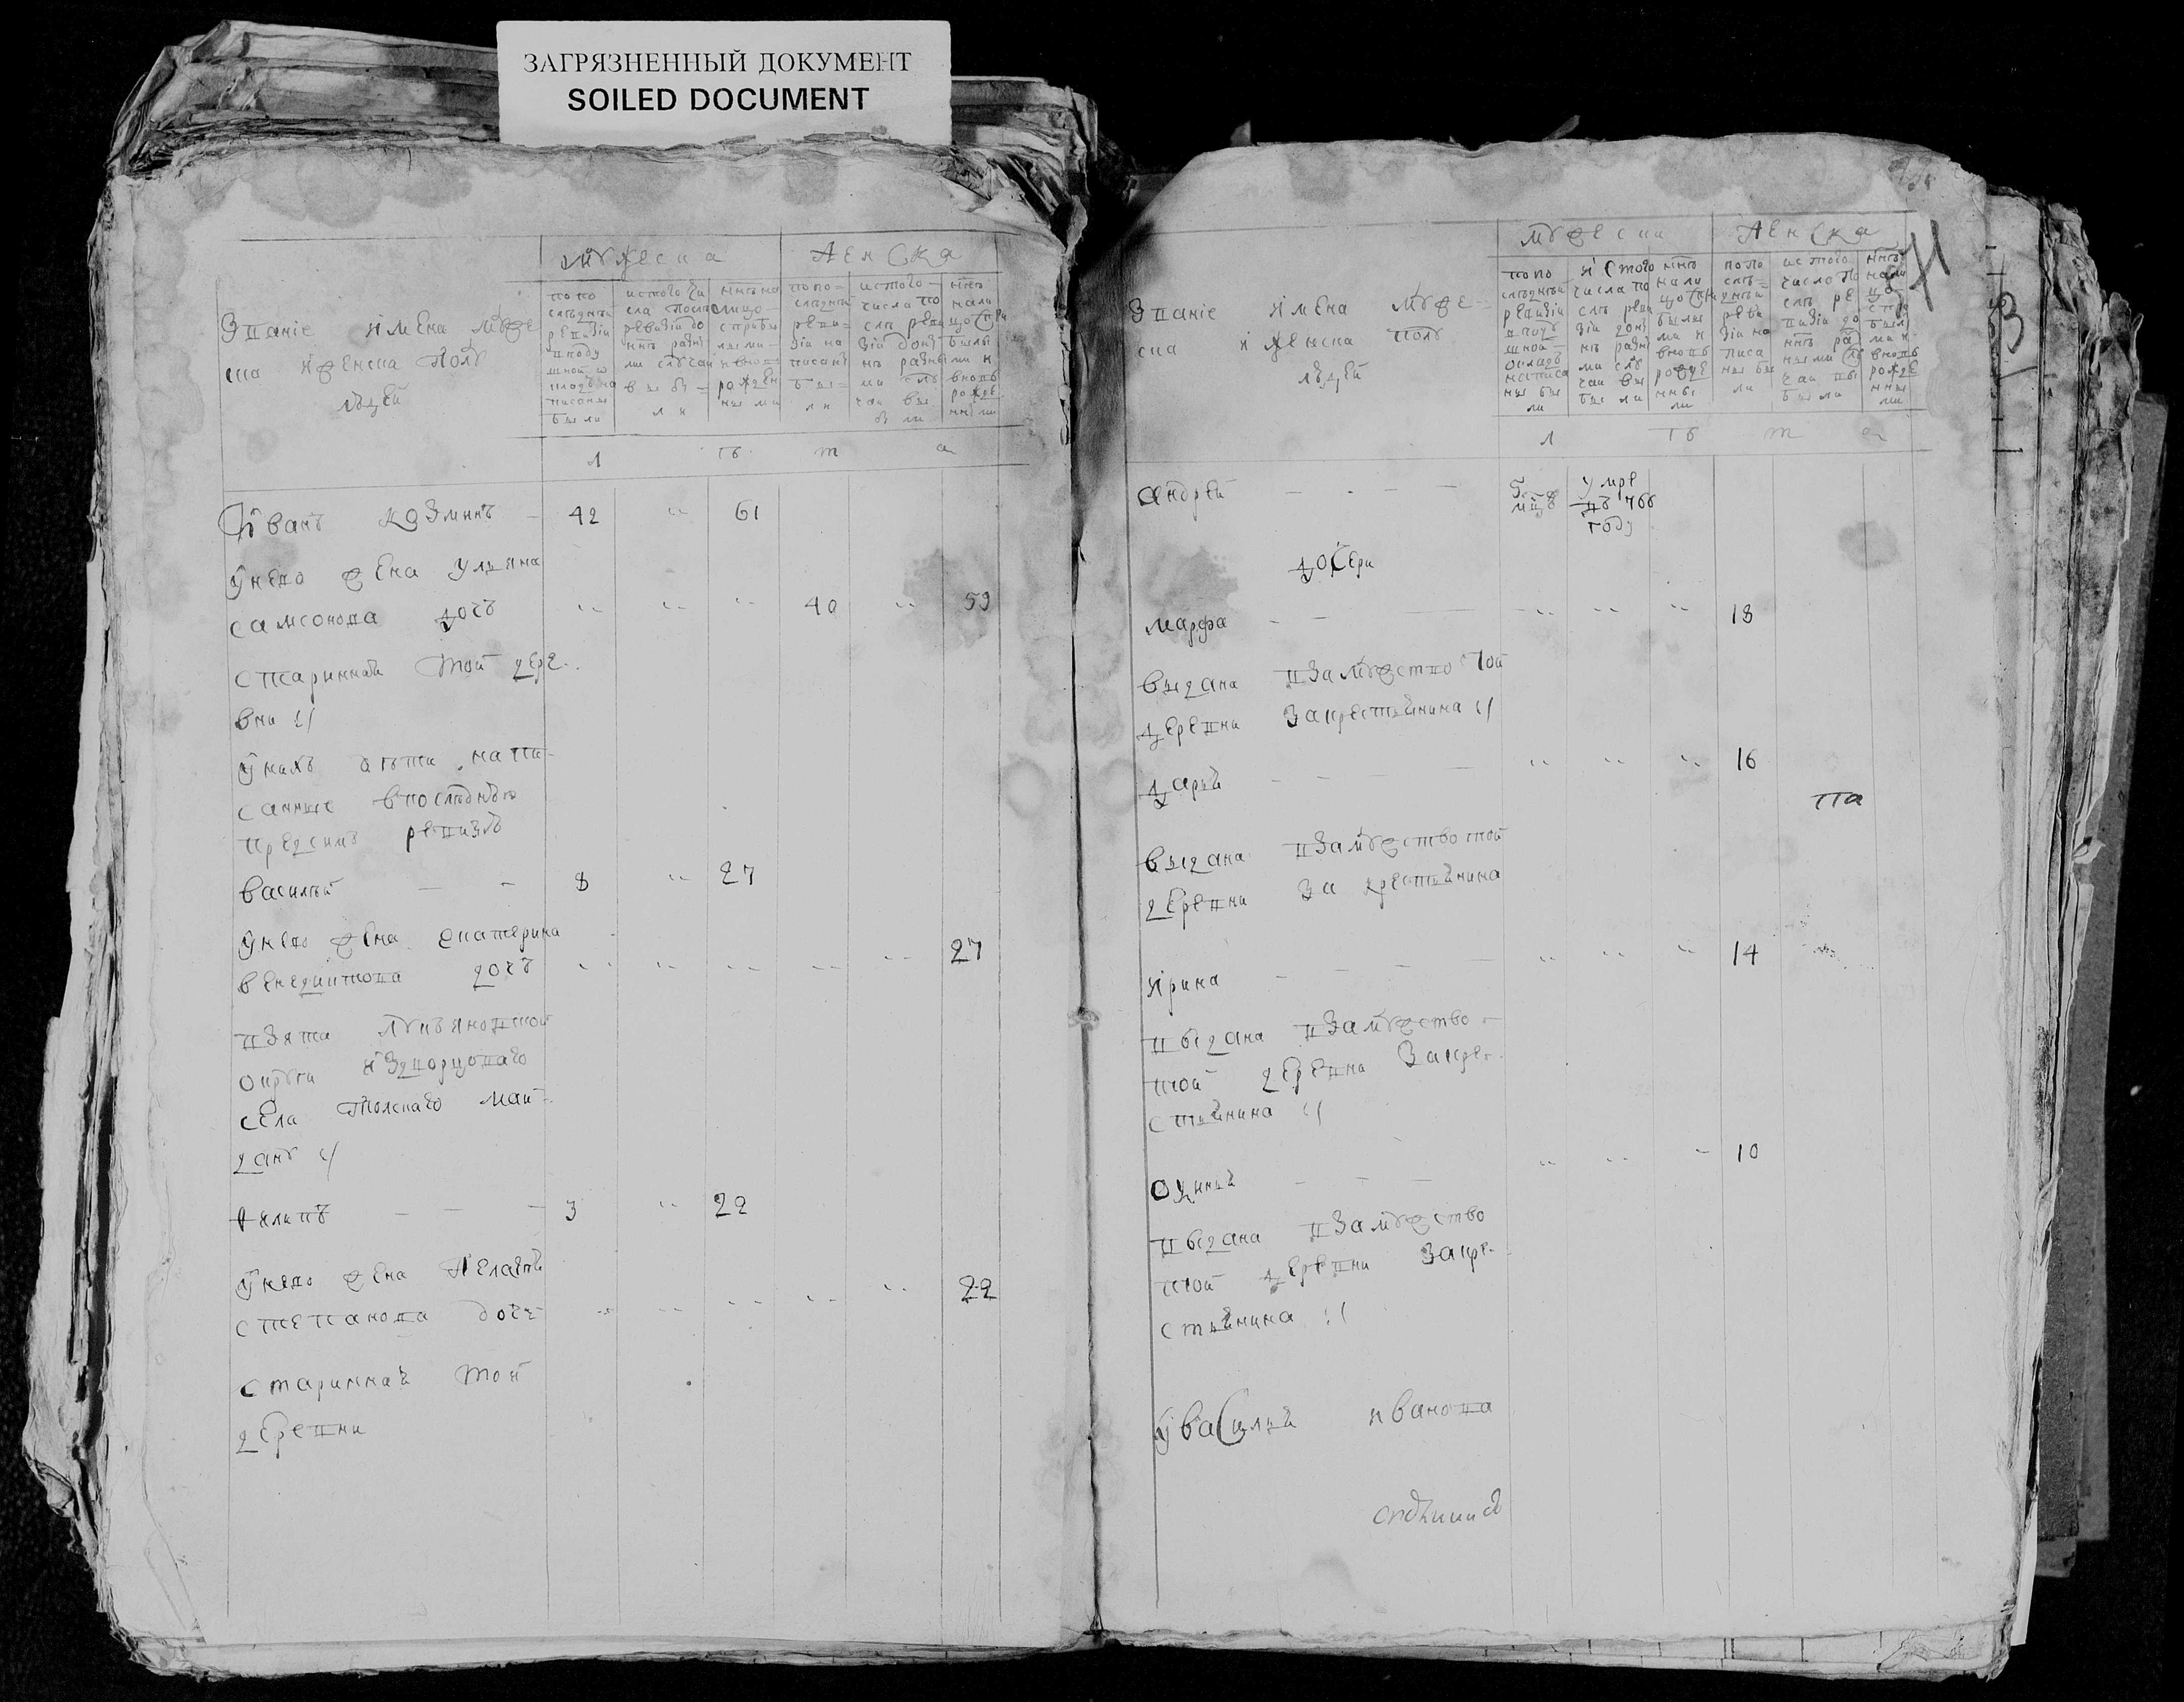 ЗАГРЯЗНЕННЫЙ ДОКУМЕНТ
SOILED DOCUMENT
мужеска
женска
Званіе имена муже
ска и женска полу
людей
по по
следней
ревизіи
в поду
шной о
кладъ на
писаны
были
ис того чи
сла после
ревизіи до
ннѣ разны
ми случаи
вы бы
ли
ннѣ на
лицо
с прибы
лыми
и вновь
рожден
ными
по по
следней
реви
зіи на
писаны
бы
ли
ис того
числа по
слѣ реви
зіи доны
нѣ разны
ми слу
чаи вы
были
ннѣ
нали
цо с при
былы
ми и
вновь
рожде
нными
л ѣ т а
Иванъ Козминъ 42 " 61
У него жена Ульяна
самсонова дочь " " " 40 " 59
старинная той дере
вни
У нихъ дѣти напи
санные в последнею
пред симъ ревизию
василей 8 " 27
У него жена екатерина
венедиктова дочь " " " " " 27
взята лукьяновской
округи из дворцоваго
села Толскаго май
дану
Филипъ 3 " 22
У него жена Пелагея
степанова дочь " " " " " 22
старинная той
деревни
71
мужеска
женска
Званіе имена муже
ска и женска полу
людей
по по
следней
ревизіи
в поду
шной
окладъ
написа
ны бы
ли
и с того
числа по
слѣ реви
зіи доны
нѣ разны
ми слу
чаи вы
были
ннѣ
нали
цо с при
былы
ми и
вновь
рожде
нны
ми
по по
слѣ
дней
реви
зіи на
писа
ны бы
ли
ис того
числа по
слѣ ре
визіи до
ннѣ ра
зными слу
чаи вы
были
ннѣ
нали
цо
с при
былы
ми и
вновь
рожде
нны
ми
л ѣ т а
андрей 5 умре
мцъ въ 766
году
дочери
марфа " " " 18
выдана в замужство той
деревни за крестьянина
дарья " " " 16
выдана в замужество той
деревни за крестьянина
ирина " " " 14
выдана в замужество
той деревни за кре
стьянина
Овдинья " " " 10
выдана в замужество
той деревни за кре
стьянина
У василья иванова